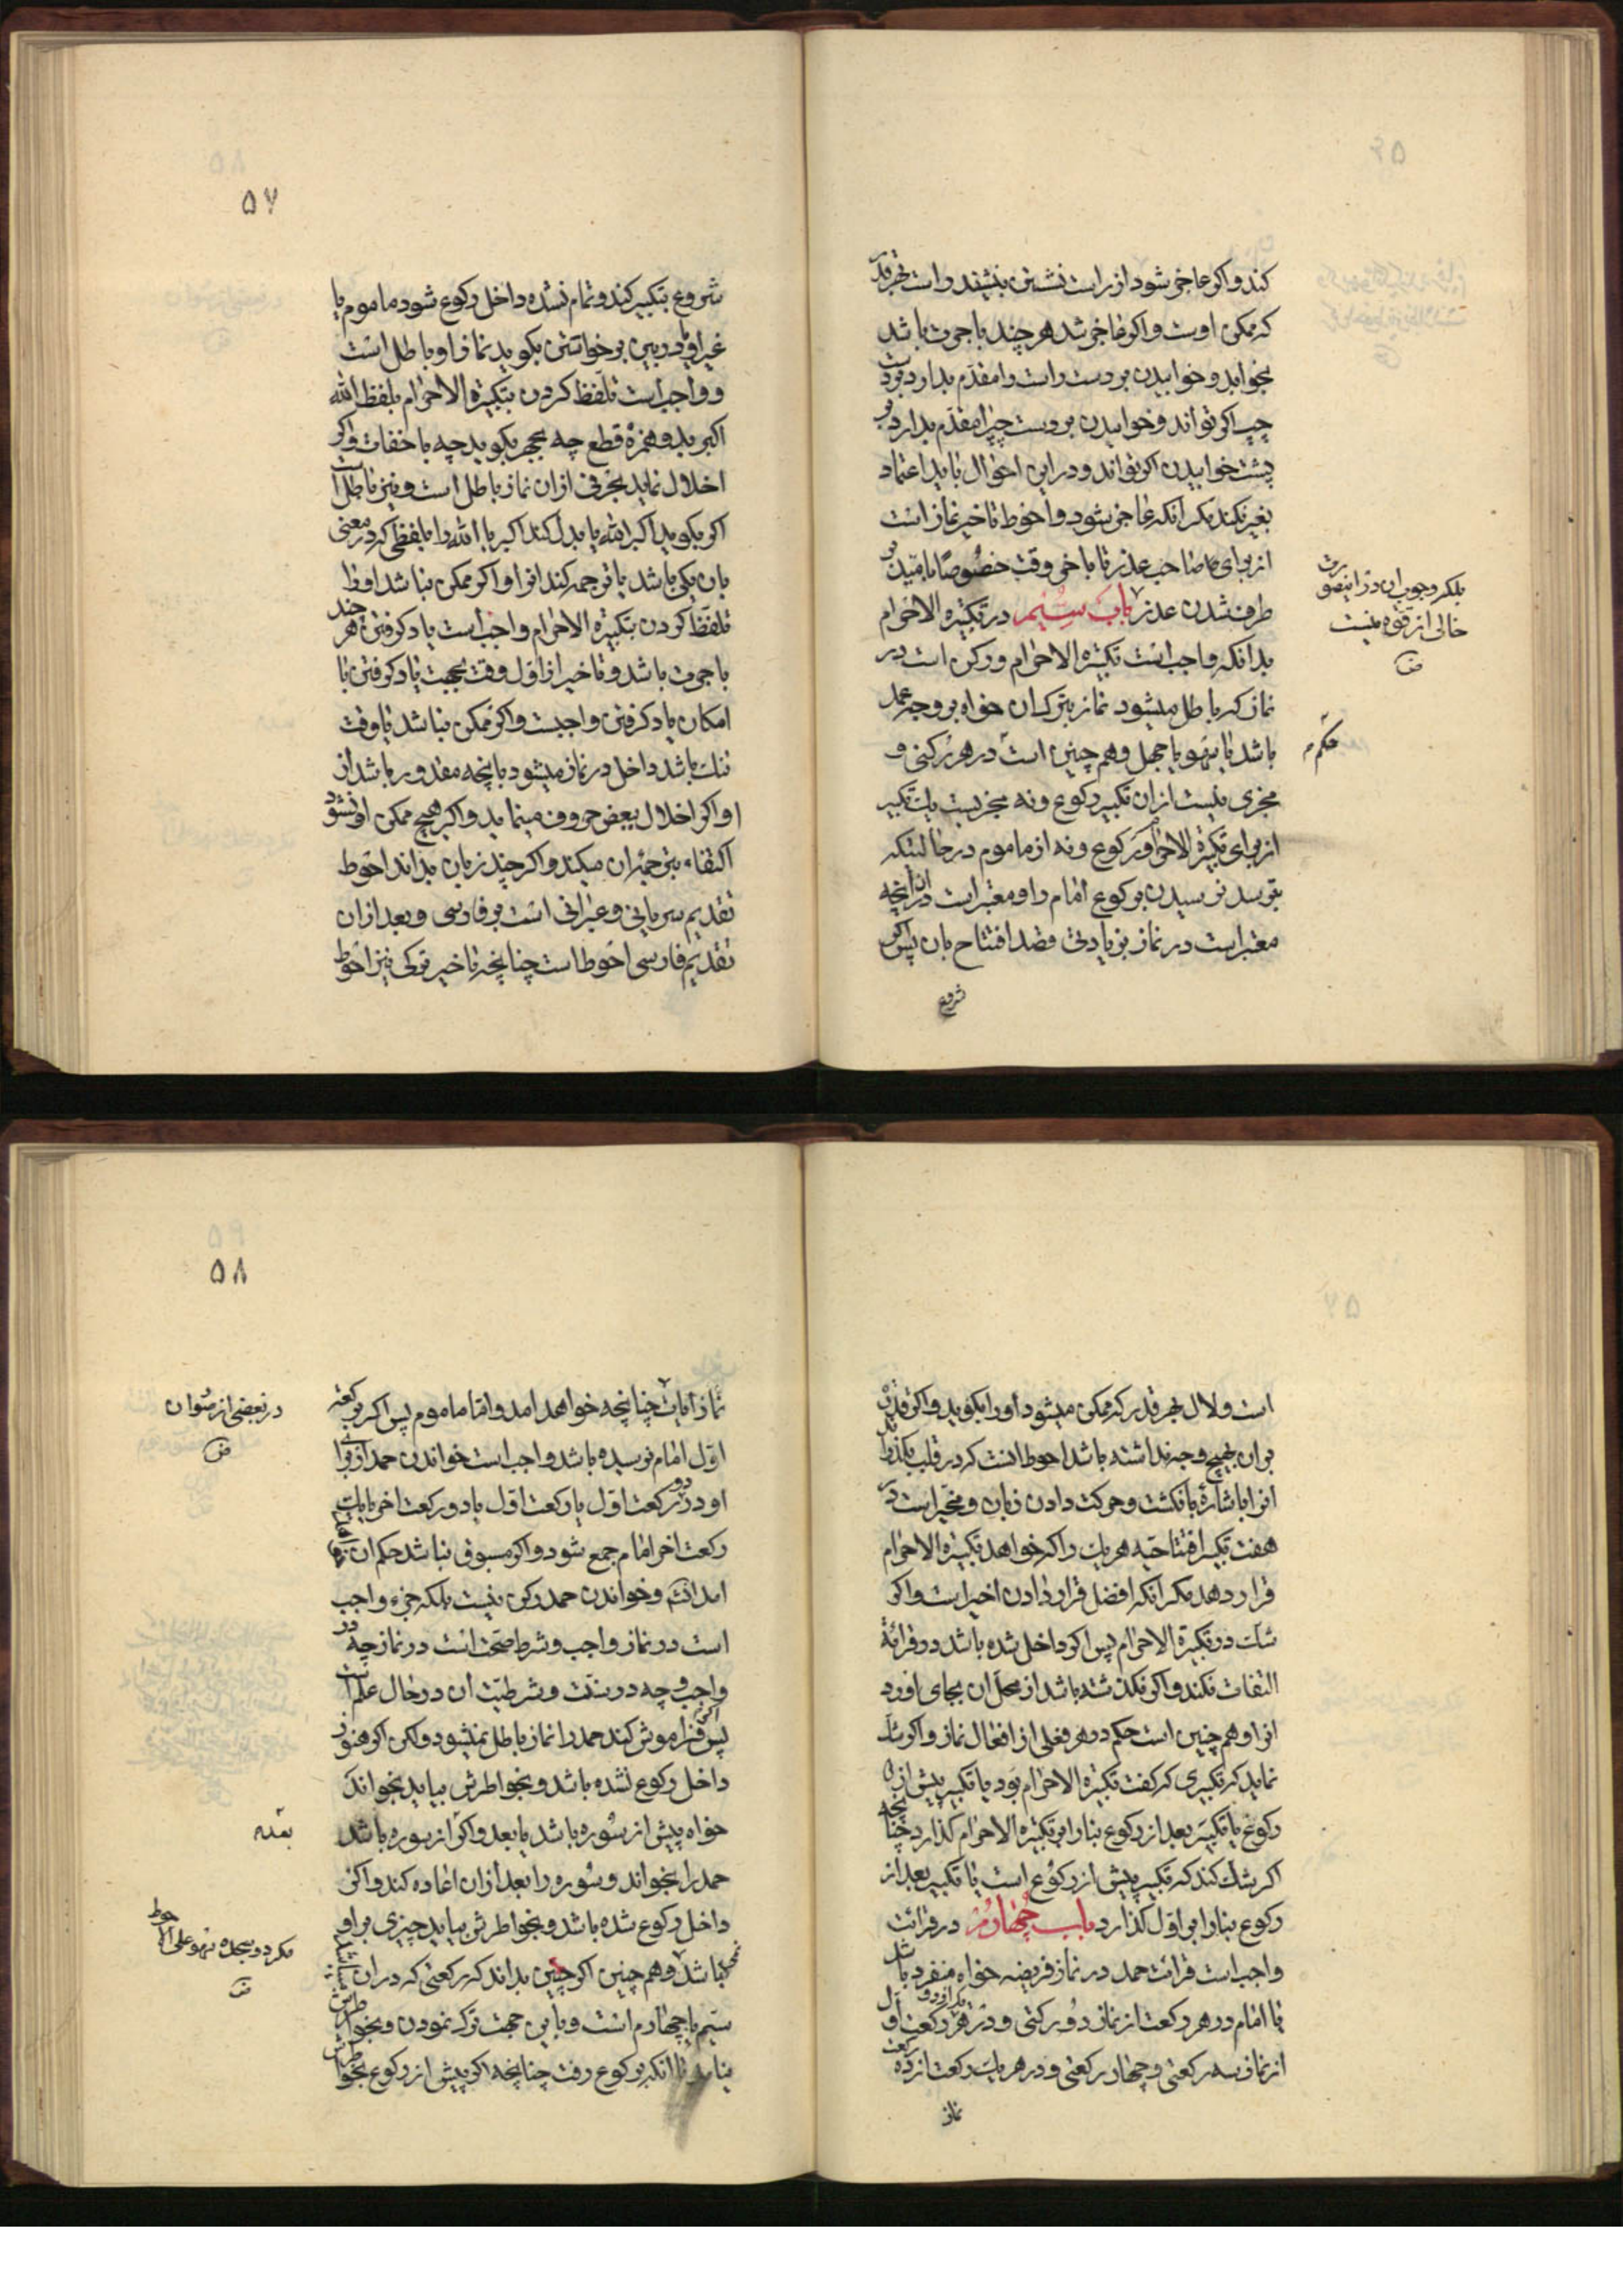 کند و اکر عاجز شود از راست نشستن بنشیند و است بهر قدر
که ممکن اوست و اکر عاجز شد هر چند باجرت باشد
بخوابد و خوابیدن بر دست راست را مقدم بدارد بر دست
چپ اکر تواند و خوابیدن بر دست چپ را مقدم بدارد بر
پشت خوابیدن اکر تواند و در این احوال باید اعتماد
بغیر نکند مکر انکه عاجز شود و احوط تاخیر نماز است
از برای صاحب عذر تا باخر وقت خصوصًا با امید بر
طرف شدن عذر باب سیم در تکبیرة الاحرام
بدانکه واجب است تکبیرة الاحرام و رکن است در
نماز که باطل میشود نماز بترک ان خواه بر وجه عمد
باشد یا سهو یا جهل و هم چنین است در هر رکنی و
مجزی نیست از ان تکبیر رکوع و نه مجزیست یک تکبیر
از برای تکبیرة الاحرام و رکوع و نه از ماموم در حالتیکه
بترسد نرسیدن برکوع امام را و معتبر است در ان انچه
معتبر است در نماز بزیادتی قصد افتتاح بان پس اکر
شروع
بلکه وجوب ان در اینصورت
خالی از قوة نیست
حکم
۵۷
شروع بتکبیر کند و تمام نشده داخل رکوع شود ماموم یا
غیر او یا در بین برخواستن بکوید نماز او باطل است
و واجب است تلفظ کردن بتکبیرة الاحرام بلفظ الله
اکبر بد و همزه قطع چه بجهر بکوید چه باخفات و اکر
اخلال نماید بحرفی از ان نماز باطل است و نیز باطل است
اکر بکوید اکبر الله یا بدل کند اکبر یا الله را بلفظی که در معنی
بان یکی باشد یا ترجمه کند انرا و اکر ممکن نباشد او را
تلفظ کردن بتکبیرة الاحرام واجب است یاد کرفتن هر چند
باجرت باشد و تاخیر از اول وقت بجهت یاد کرفتن با
امکان یاد کرفتن واجبست و اکر ممکن نباشد یا وقت
تنک باشد داخل در نماز میشود بانچه مقدور باشد از
او اکر اخلال ببعض حروف مینماید و اکر هیچ ممکن او نشود
اکتفاء بترجمه ان میکند و اکر چند زبان بداند احوط
تقدیم سریانی و عبرانی است بر فارسی و بعد از ان
تقدیم فارسی احوط است چنانچه تاخیر ترکی نیز احوط
است و لال بهر قدر که ممکن میشود او را بکوید و اکر قدرت
بر ان بهیچ وجه نداشته باشد احوط انست که در قلب بکذراند
انرا باشارة بانکشت و حرکت دادن زبان و مخیر است در
هفت تکبیر افتتاحیه هر یک را که خواهد تکبیرة الاحرام
قرار دهد مکر انکه افضل قرار دادن اخیر است و اکر
شک در تکبیرة الاحرام پس اکر داخل شده باشد در قرائة
التفات نکند و اکر نکذشته باشد از محل ان بجای اورد
انرا و هم چنین است حکم در هر فعلی از افعال نماز و اکر شک
نماید که تکبیری که کفت تکبیرة الاحرام بود یا تکبیر پیش از
رکوع یا تکبیر بعد از رکوع بنا را بر تکبیرة الاحرام کذارد چنانچه
اکر شک کند که تکبیر پیش از رکوع است یا تکبیر بعد از
رکوع بنا را بر اول کذارد باب چهارم در قرائت
واجب است قرائت حمد در نماز فریضه خواه منفرد باشد
یا امام در هر رکعت از نماز دو رکعتی و در هر یک از دو رکعت اول
از نماز سه رکعتی و چهار رکعتی و در هر یک رکعت از ده رکعت
نماز
۵۸
نماز ایات چنانچه خواهد امد و اما ماموم پس اکر برکعت
اول امام نرسیده باشد واجب است خواندن حمد از برای
او در دو رکعت اول یا رکعت اول یا دو رکعت اخر یا یک
رکعت اخر امام جمع شود و اکر مسبوق نباشد حکم ان
امد و خواندن حمد رکن نیست بلکه جزء واجب
است در نماز واجب و شرط صحت است در نماز چه در
واجب و چه در سنت و شرطیت ان در حال علم است
پس اکر فراموش کند حمد را نماز باطل نمیشود و لکن اکر هنوز
داخل رکوع نشده باشد و بخواطرش بیاید بخواند
خواه پیش از سوره باشد یا بعد و اکر از سوره باشد
حمد را بخواند و سوره را بعد از ان اعاده کند و اکر
داخل رکوع شده باشد و بخواطرش بیاید چیزی بر او
نمیباشد و هم چنین اکر چنین بداند که رکعتی که در ان
سیم یا چهارم است و باین جهت ترک نمودن و بخواطرش
نیاید تا انکه برکوع رفت چنانچه اکر پیش از رکوع بخواطرش
در بعضی از متوان
بعد
مکر دو سجده سهو علی الاحوط